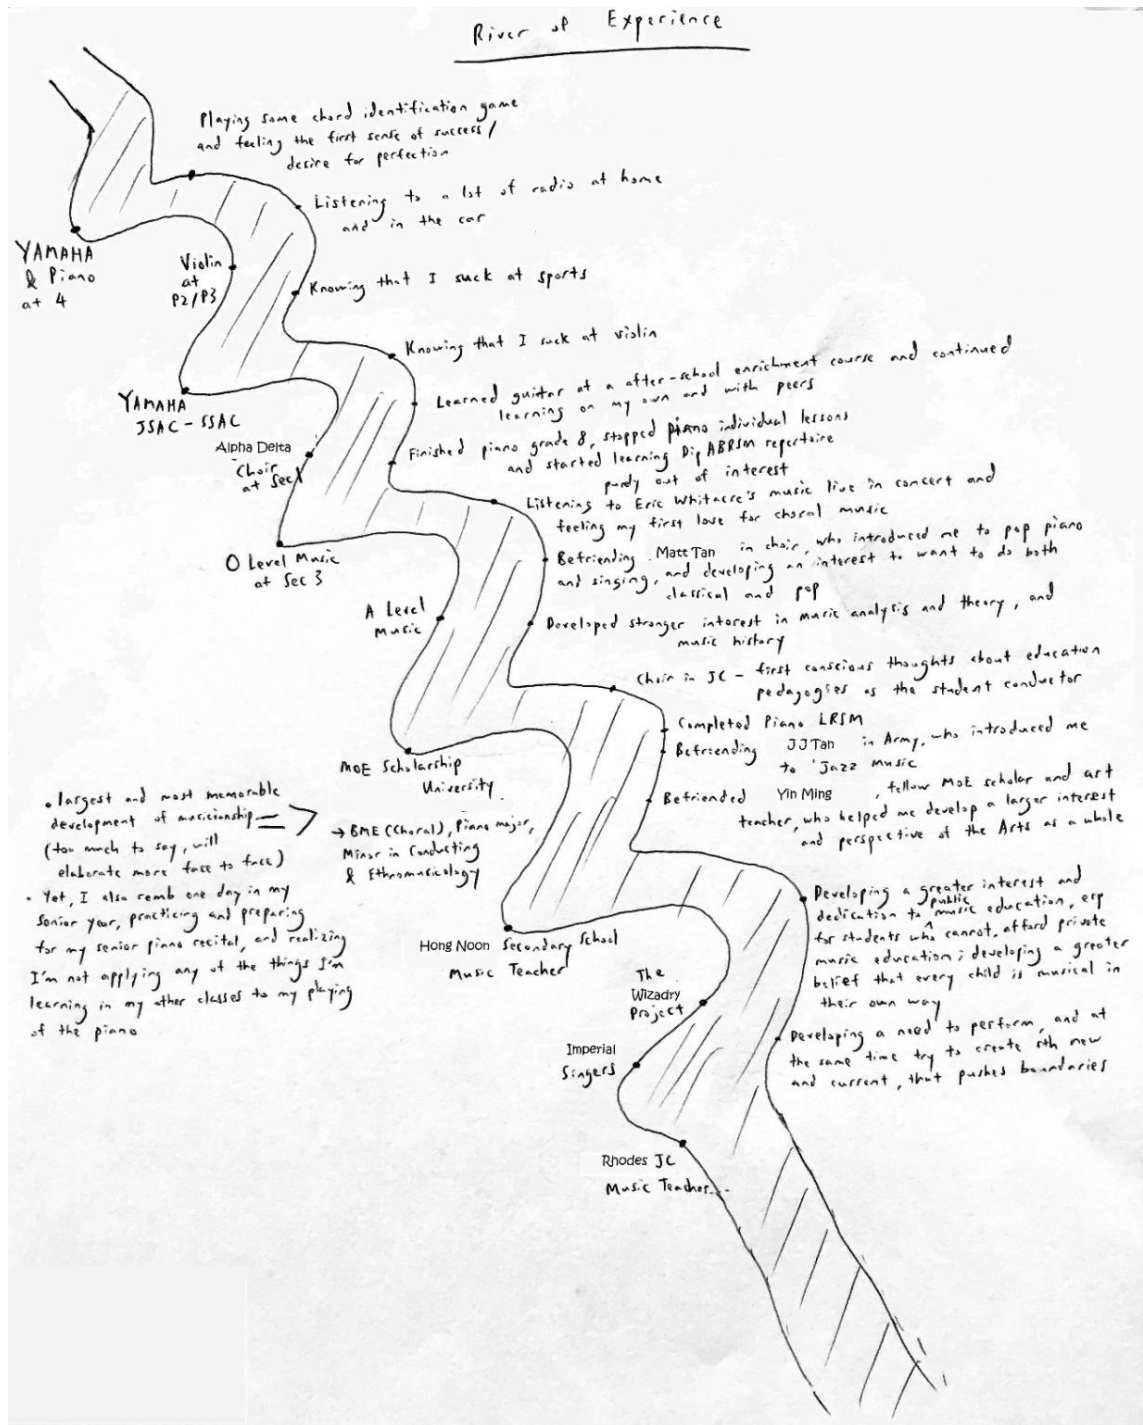 River of Experience
Playing some chord identification game
and feeling the first sense of success/
desire for perfection
Listening to a lot of radio at home
and in the car
YAMAHA
& Piano
at 4
Violin
at
P2/P3
Knowing that I suck at sports
Knowing that I suck at violin
YAMAHA
JSAC - SSAC
Learned guitar at a after-school enrichment course and continued
learning on my own and with peers
Alpha Delta
Choir
at Sec 1
Finished piano grade 8, stopped piano individual lessons
and started learning Dip ABRSM repertoire
purely out of interest
Listening to Eric Whitacre's music live in concert and
feeling my first love for choral music
O Level Music
at Sec 3
Befriending Matt Tan in choir, who introduced me to pop piano
and singing, and developing an interest to want to do both
classical and pop
A Level
Music
Developed stronger interest in music analysis and theory, and
music history
Choir in JC - first conscious thoughts about education
pedagogies as the student conductor
Completed Piano LRSM
Befriending JJ Tan in Army, who introduced me
to Jazz Music
MOE Scholarship
University
Befriended Yin Ming, fellow MOE scholar and art
teacher, who helped me develop a larger interest
and perspective of the Arts as a whole
• largest and most memorable
development of musicianship
(too much to say, will
elaborate more face to face)
→ BME (Choral), Piano major,
Minor in Conducting
& Ethnomusicology
• Yet, I also remb one day in my
senior year, practicing and preparing
for my senior piano recital, and realizing
I'm not applying any of the things I'm
learning in my other classes to my playing
of the piano
Hong Noon Secondary School
Music Teacher
Developing a greater interest and
dedication to public music education, esp
for students who cannot afford private
music education; developing a greater
belief that every child is musical in
their own way
The
Wizadry
Project
Developing a need to perform, and at
the same time try to create sth new
and current, that pushes boundaries
Imperial
Singers
Rhodes JC
Music Teacher...